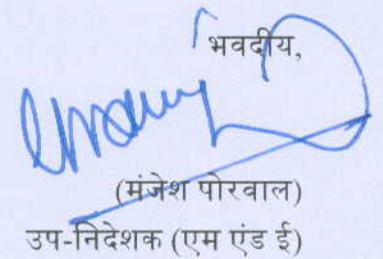 भवदीय,
(मंजेश पोरवाल)
उप-निदेशक (एम एंड ई)